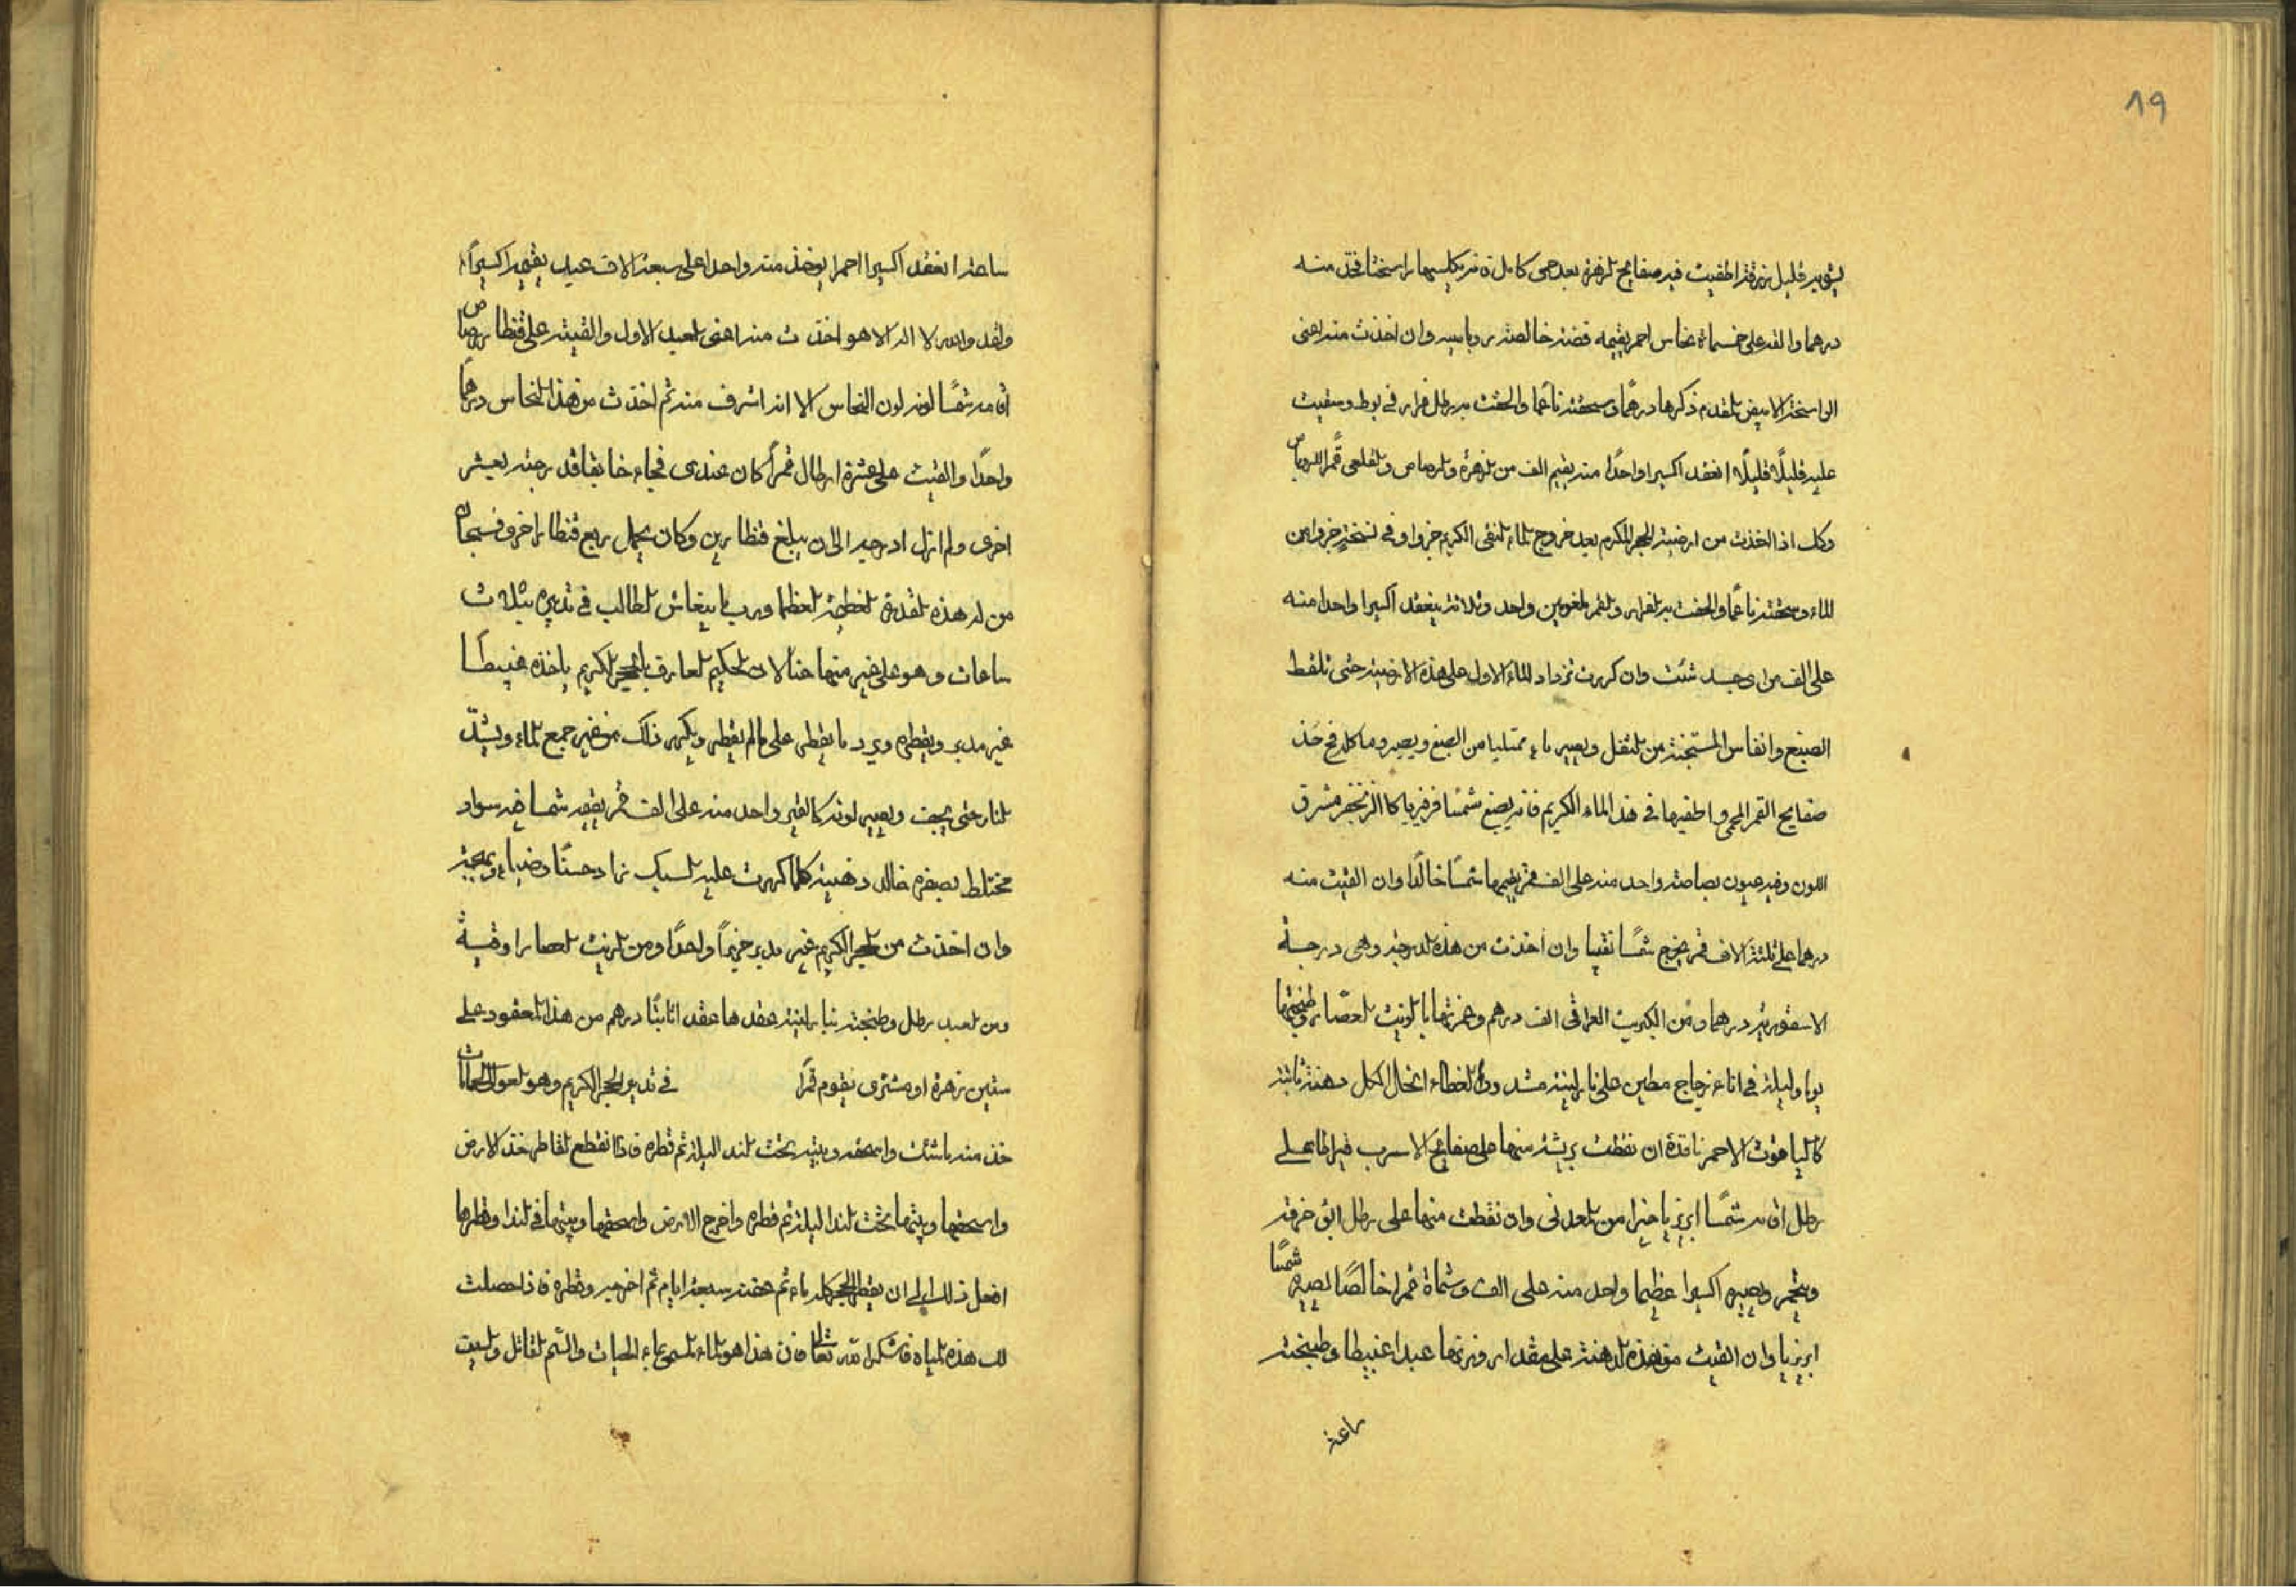 ٨٩
بتدبير قليل زرقة اطفيت فيه صفايح الزهرة بعد حمى كاملة فتكليسها راسختا فخذ منه
درهما والقه على خمسماة نحاس احمر يقيمه فضة خالصة روباسية وان اخذت منه اعنى
الراسختة الابيض المقدم ذكرها درهمًا وسحقته ناعمًا والحقت به رطل فرار في بوط وسقيت
عليه قليلًا قليلًا انعقد اكسيرا واحدًا منه يقيم الف من الزهرة والرصاص والقلعى قمر الروباص
وكك اذا اخذت من ارضية الحجر المكرم بعد خروج الماء النقى الكريم جزوا وفى نسخة جزوين
الماء وسحقته ناعمًا والحقت به الفرار والقمر الملغومين واحد وثلاثة ينعقد اكسيرا واحدا منه
على الف من اى جسد شئت وان كررت تزداد الماء الاول على هذه الارضية حتى تلقط
الصبغ وانفاس المستجنة من الثفل ويصير ماء ممتليا من الصبغ ويصير وماكله فخ خذ
صفايح القمر المحمى واطفيها في هذا الماء الكريم فانه يصبغ شمسًا فرفيريا كالزنجفر مشرق
اللون وفيه عيون بصاصة واحد منه على الف قمر يقيمها شمسًا خالدًا وان القيت منه
درهما على ثلثة الاف قمر يخرج شمسًا نقيا وان اخذت من هذه الدرجة وهى درجة
الاسقورية درهما ومن الكبريت العراقى الف درهم وغمرتهما بالزيت العصار وطبختهما
يوما وليلة في اناء زجاج مطين على نار لينة مشدود الغطاء انحل الكل دهنة ثابتة
كالياقوت الاحمر نافذة ان نقطت بريشة منها على صفايح الاسرب فيه الحمى على
رطل اقامه شمسًا ابريزيا خيرا من المعدنى وان نقطت منها على رطل ابق خرقه
وتحجر ويصير اكسيرا عظيما واحد منه على الف وستماة قمرا خالصًا يصيره شمسًا
ابريزيا وان القيت من هذه الدهنة على مقدار وزنها عبدا غبيطا وطبخته
ساعة
ساعة انعقد اكسيرا احمرا يوخذ منه واحدا على سبعة الاف عبد يقيمه اكسيرًا
ولقد والله لا اله الا هو اخذت منه اعنى العبد الاول والقيته على قنطار رصاص
اقامه شمسًا لونه لون النحاس الا انه اشرف منه ثم اخذت من هذا النحاس درهمًا
واحدًا والقيت على عشرة ارطال قمرًا كان عندى فجاء خايفا قد رجته بعيشر
اخرى ولم ازل ادرجه الى ان يبلغ قنطارين وكان يحمل ربع قنطار اخر وفسبحان
من له هذه القدرة العظيمة العظما وربما ينعاش الطالب في تدبيره بثلاث
ساعات وهو على خير منها مثالا ان الحكيم العارف بالحجر الكريم ياخذه غبيطًا
غير مدبر ويقطره ويرد ما يقطر على مالم يقطر ويكرر ذلك من غير جمع الماء ويشدّ
النار حتى يجف ويصير لونه كالقير واحد منه على الف قمر يقيمه شمسا فيه سواد
مختلط بصفرة خالد ذهبية كلما كررت عليه السبك زاد حسنًا وضياء وبهجة
وان اخذت من الحجر الكريم غير مدبر جزءًا واحدًا ومن الزيت العصار اوقية
ومن العبد رطل وطبخته بنار لينة عقدها عقد اثابتًا درهم من هذا المعقود على
ستين زهرة او مشترى يقوم قمرًا في تدبير الحجر الكريم وهو المعول الى الممات
خذ منه ما شئت واسحقه وبيته تحت الندا ليلة ثم قطره فاذا انقطع القاطر خذ الارض
واسحقها وبيتها تحت الندا ليلة ثم قطره واخرج الارض واسحقها وبيتها في الندا وقطرها
افعل ذلك الى ان يقطر الحجر كله ماء ثم عفنه سبعة ايام ثم اخرجه وقطره فاذا حصلت
لك هذه المياه فاشكر الله تعالى فان هذا هو الماء المسمى بماء الحيات والسّم القاتل والسيف